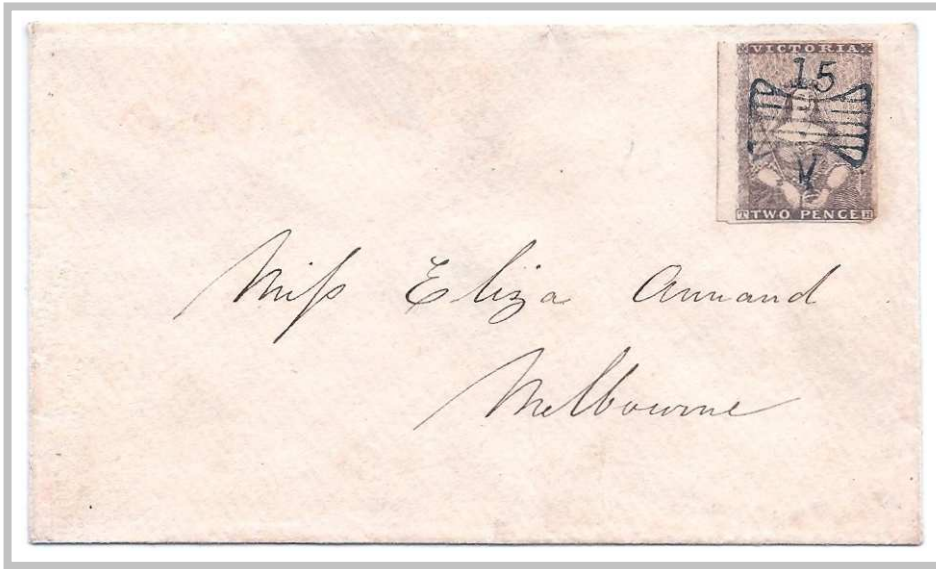 VICTORIA
15
V
TWO PENCE
Miss Eliza Annand
Melbourne